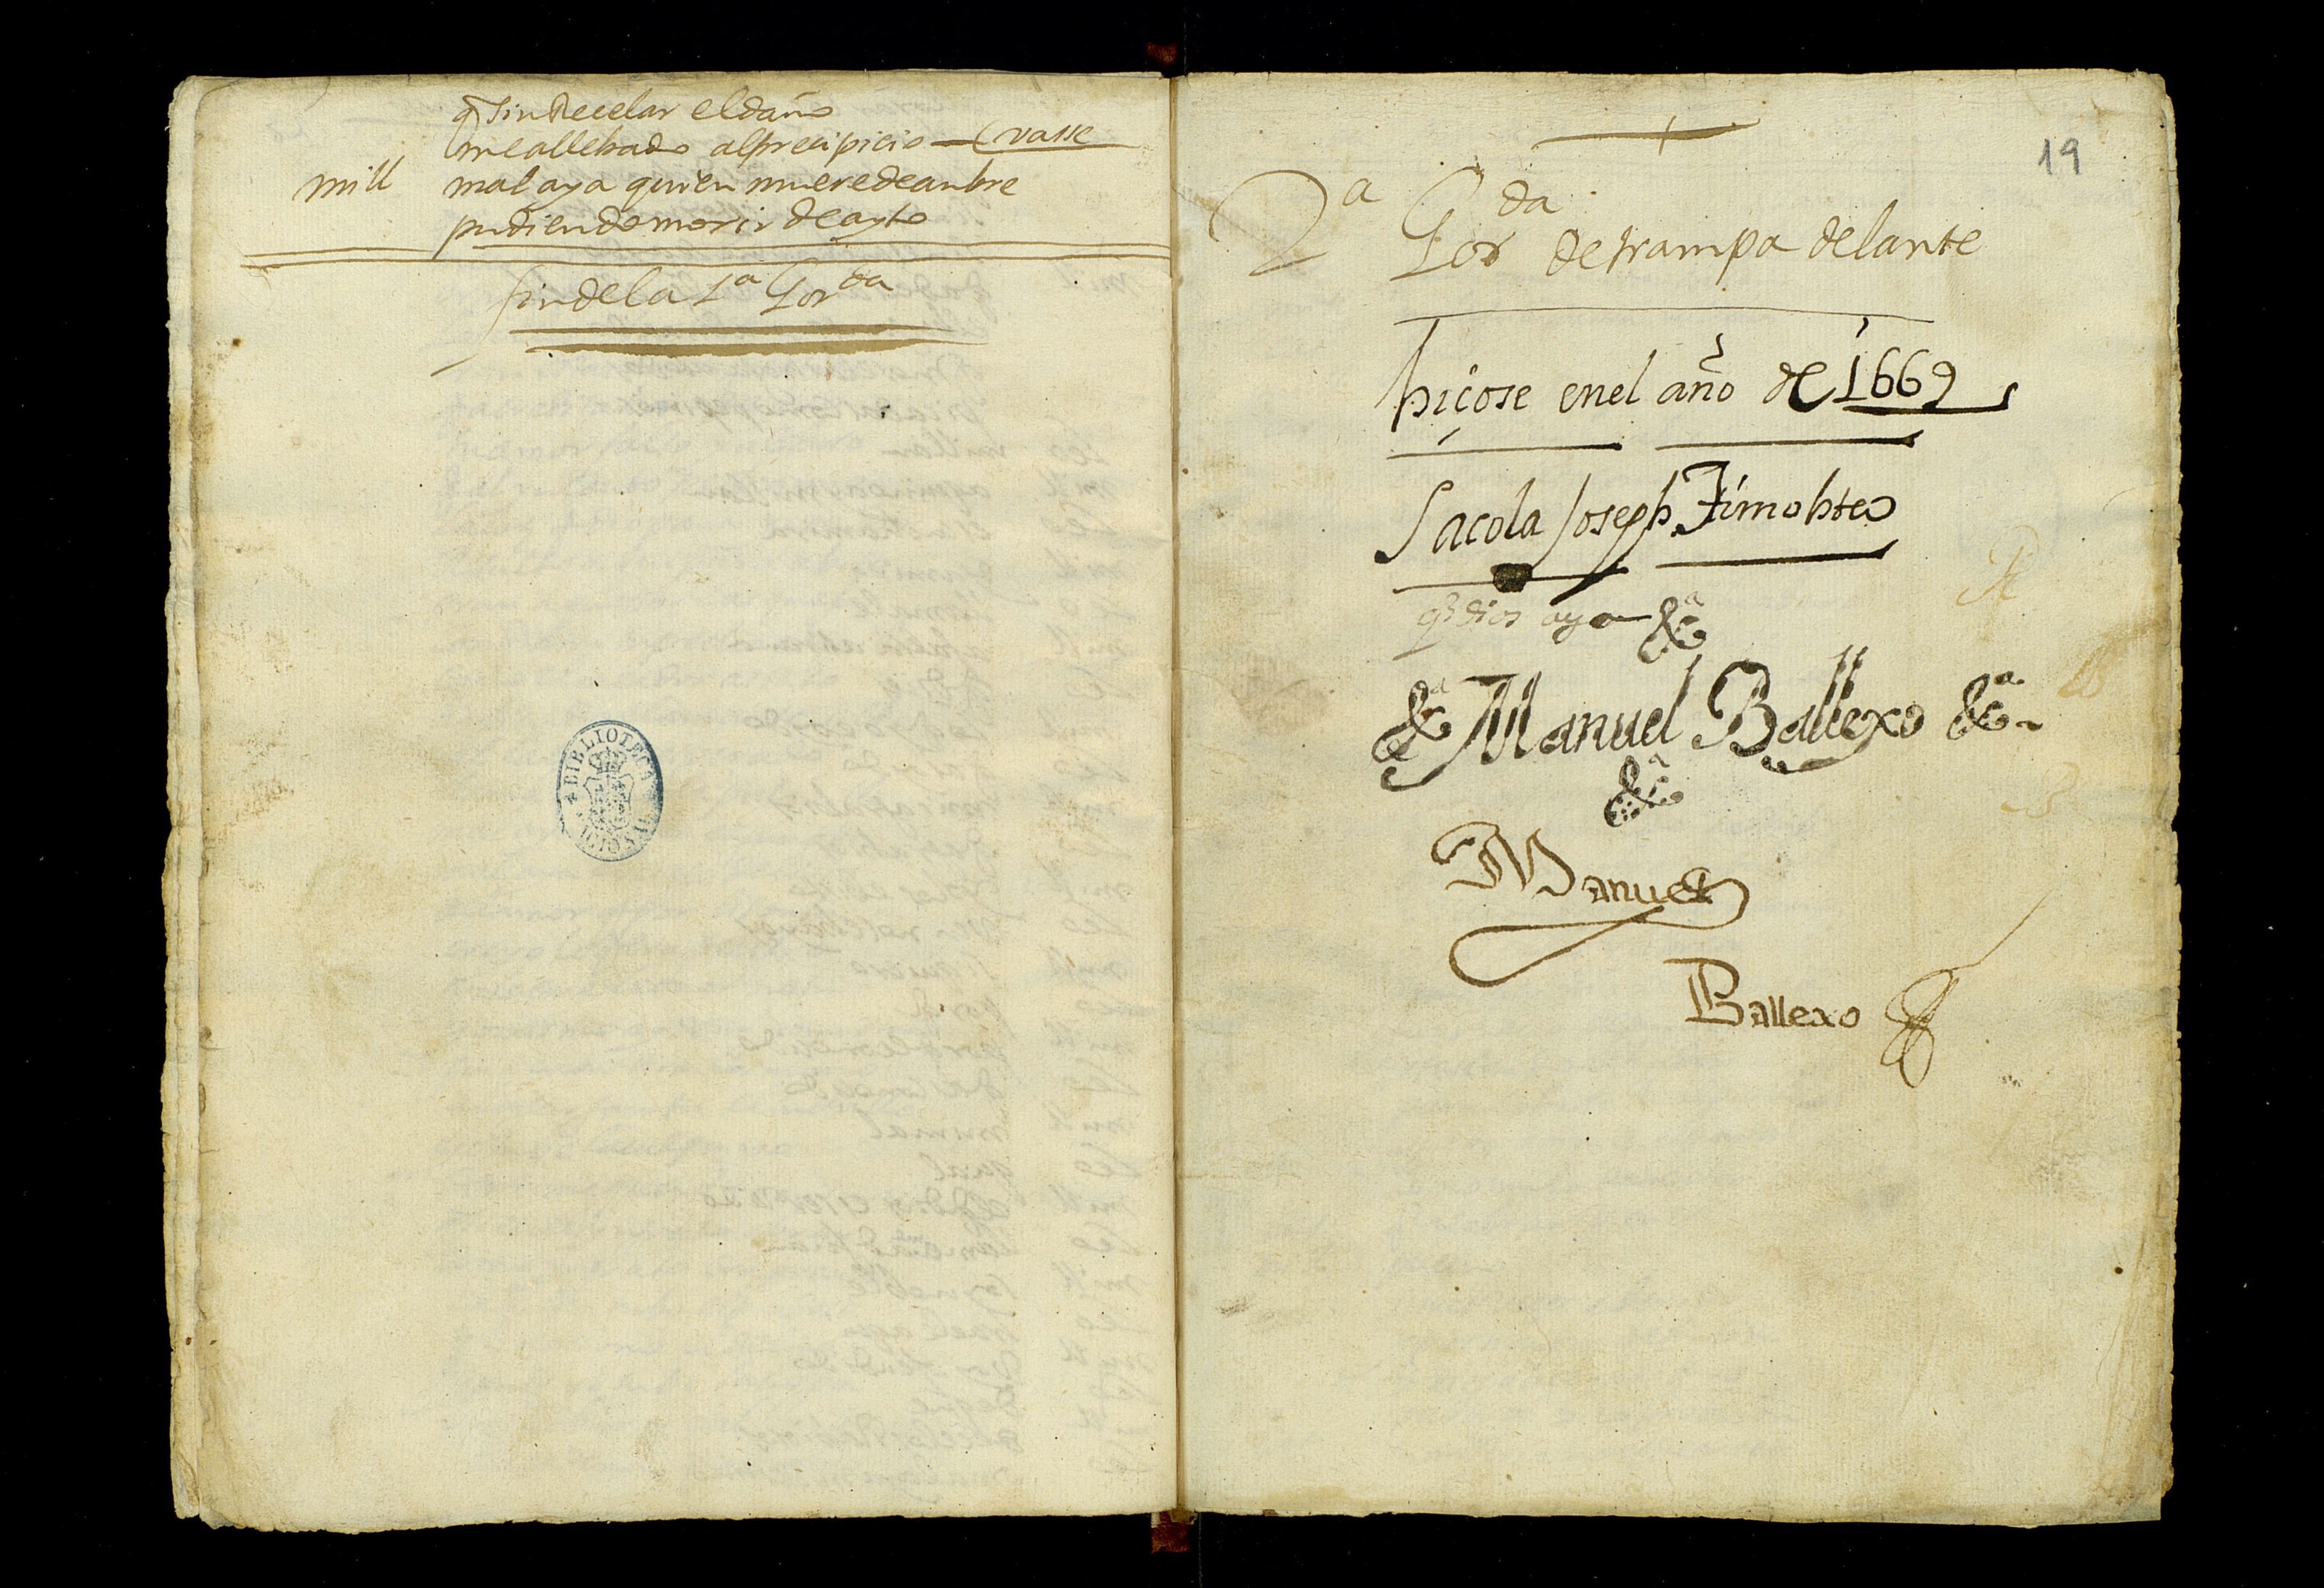 q sin Recelar el daño
me a llebado al precipicio — (vasse
mill mal aya quien muere de anbre
pudiendo morir de ayto
fin de la 1ª Jorda
BIBLIOTECA NACIONAL
19
2ª Jorda de trampa delante
hiçose en el año de 1669
Sacola Joseph Timohteo
q dios aya &ª
&ª Manuel Ballexo &ª
&ª
Manuel
Ballexo